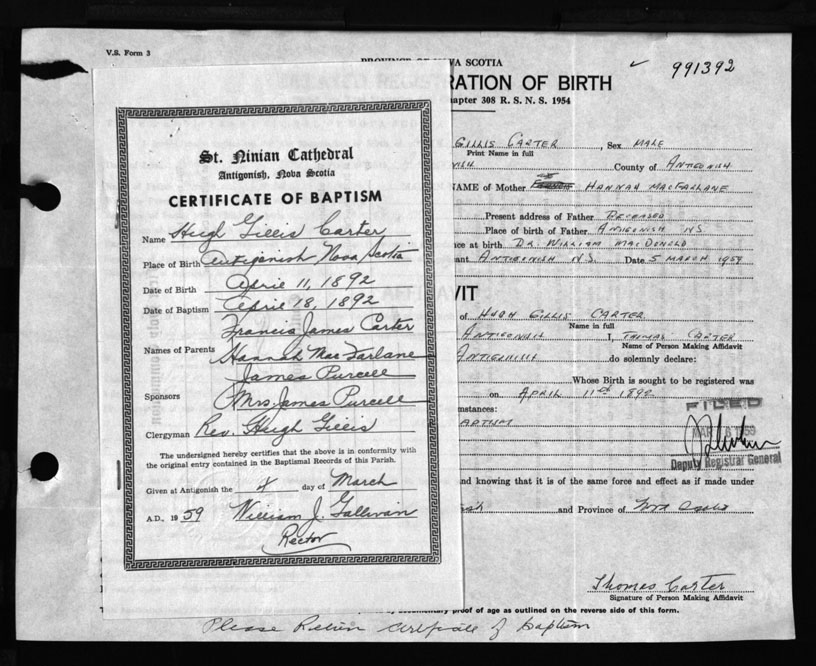 V.S. Form 3
PROVINCE OF NOVA SCOTIA
991392
RATION OF BIRTH
hapter 308 R. S. N. S. 1954
St. Ninian Cathedral
Antigonish, Nova Scotia
CERTIFICATE OF BAPTISM
Name Hugh Gillis Carter
Place of Birth Antigonish Nova Scotia
Date of Birth April 11, 1892
Date of Baptism April 18, 1892
Names of Parents Francis James Carter
Hannah MacFarlane
Sponsors James Purcell
Mrs. James Purcell
Clergyman Rev. Hugh Gillis
The undersigned hereby certifies that the above is in conformity with
the original entry contained in the Baptismal Records of this Parish.
Given at Antigonish the day of March
A.D., 1959 William J. Gallivan
Rector
GILLIS CARTER, Sex MALE
Print Name in full
NISH County of ANTIGONISH
NAME of Mother HANNAH MACFARLANE
Present address of Father DECEASED
Place of birth of Father ANTIGONISH N.S.
ce at birth DR. WILLIAM MACDONALD
ant ANTIGONISH N.S. Date 5 MARCH 1959
VIT
of HUGH GILLIS CARTER
Name in full
ANTIGONISH I, THOMAS CARTER
Name of Person Making Affidavit
ANTIGONISH do solemnly declare:
Whose Birth is sought to be registered was
on APRIL 11th 1892
mstances:
BAPTISM
FILED
MAR 1959
Deputy Registrar General
and knowing that it is of the same force and effect as if made under
and Province of Nova Scotia
Thomas Carter
Signature of Person Making Affidavit
documentary proof of age as outlined on the reverse side of this form.
Please Return Certificate of Baptism